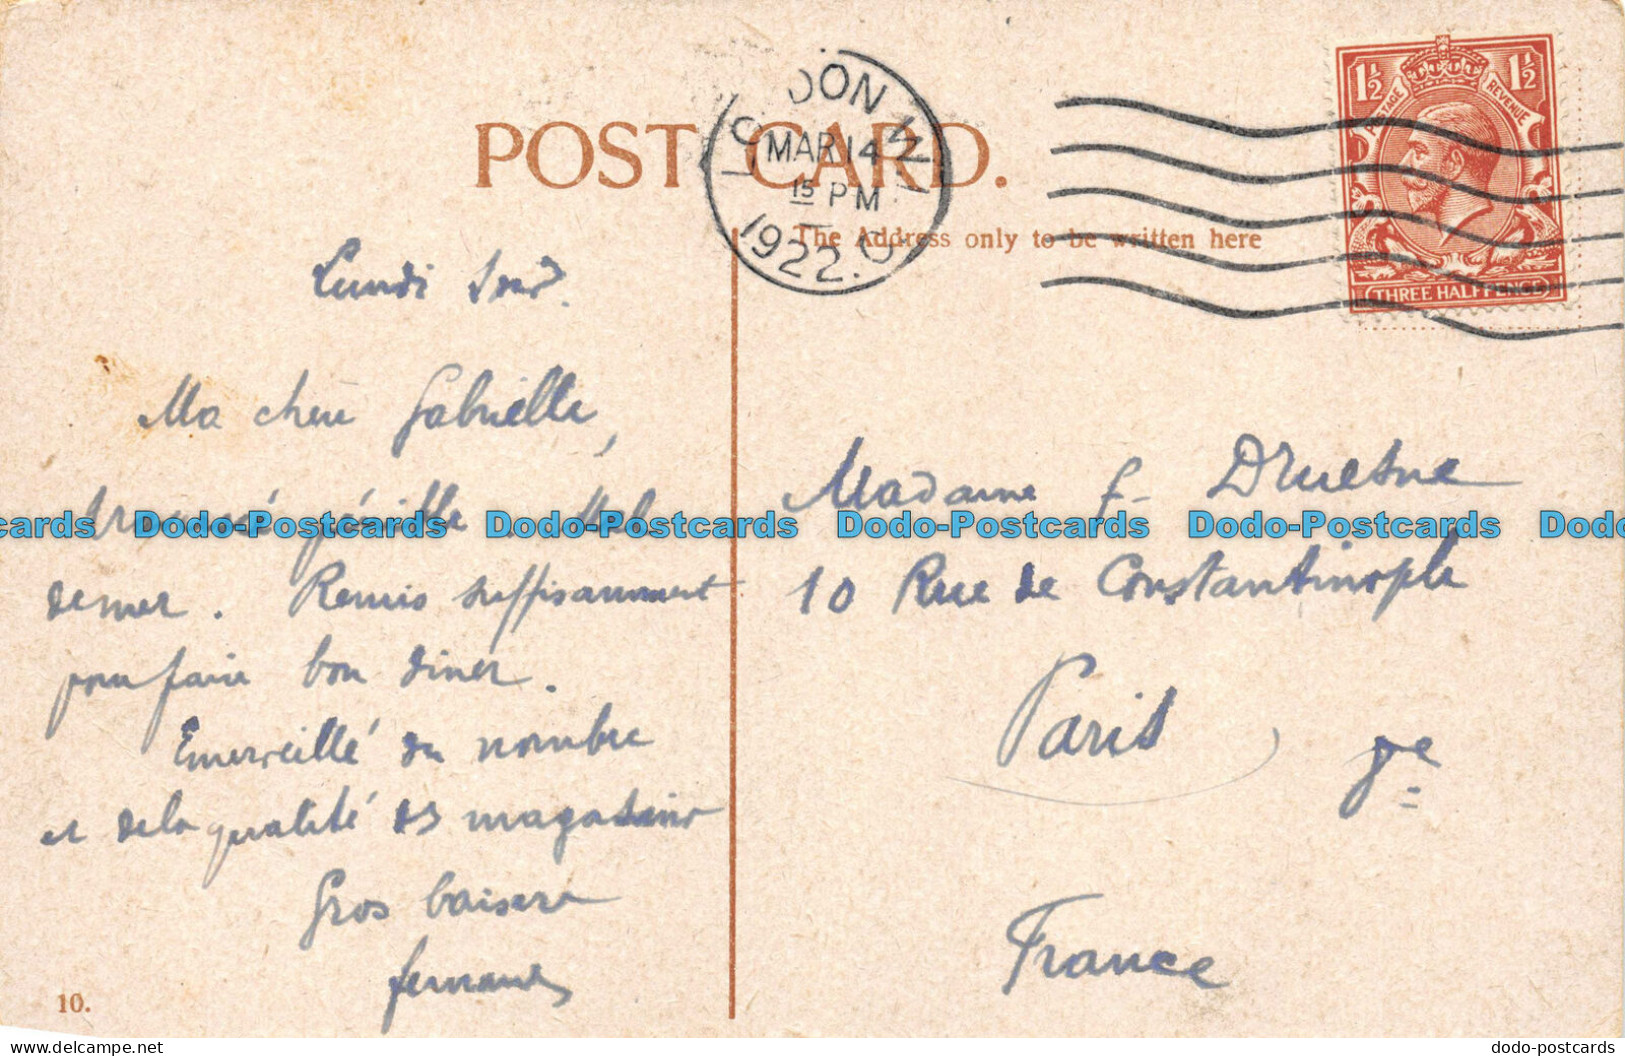 POST CARD.
LONDON W.1
MAR 14
15 PM
1922.C
1½ 1½
POSTAGE REVENUE
THREE HALFPENCE
The Address only to be written here
Lundi
Ma chère Gabrielle,
mal
de mer. Remis suffisamment
pour faire bon diner.
Emerveillé du nombre
et de la qualité des magasins
Gros baisers
fernand
Madame F. Druesne
10 Rue de Constantinople
Paris
France
10.
Dodo-Postcards Dodo-Postcards Dodo-Postcards Dodo-Postcards Dodo
dodo-postcards.com